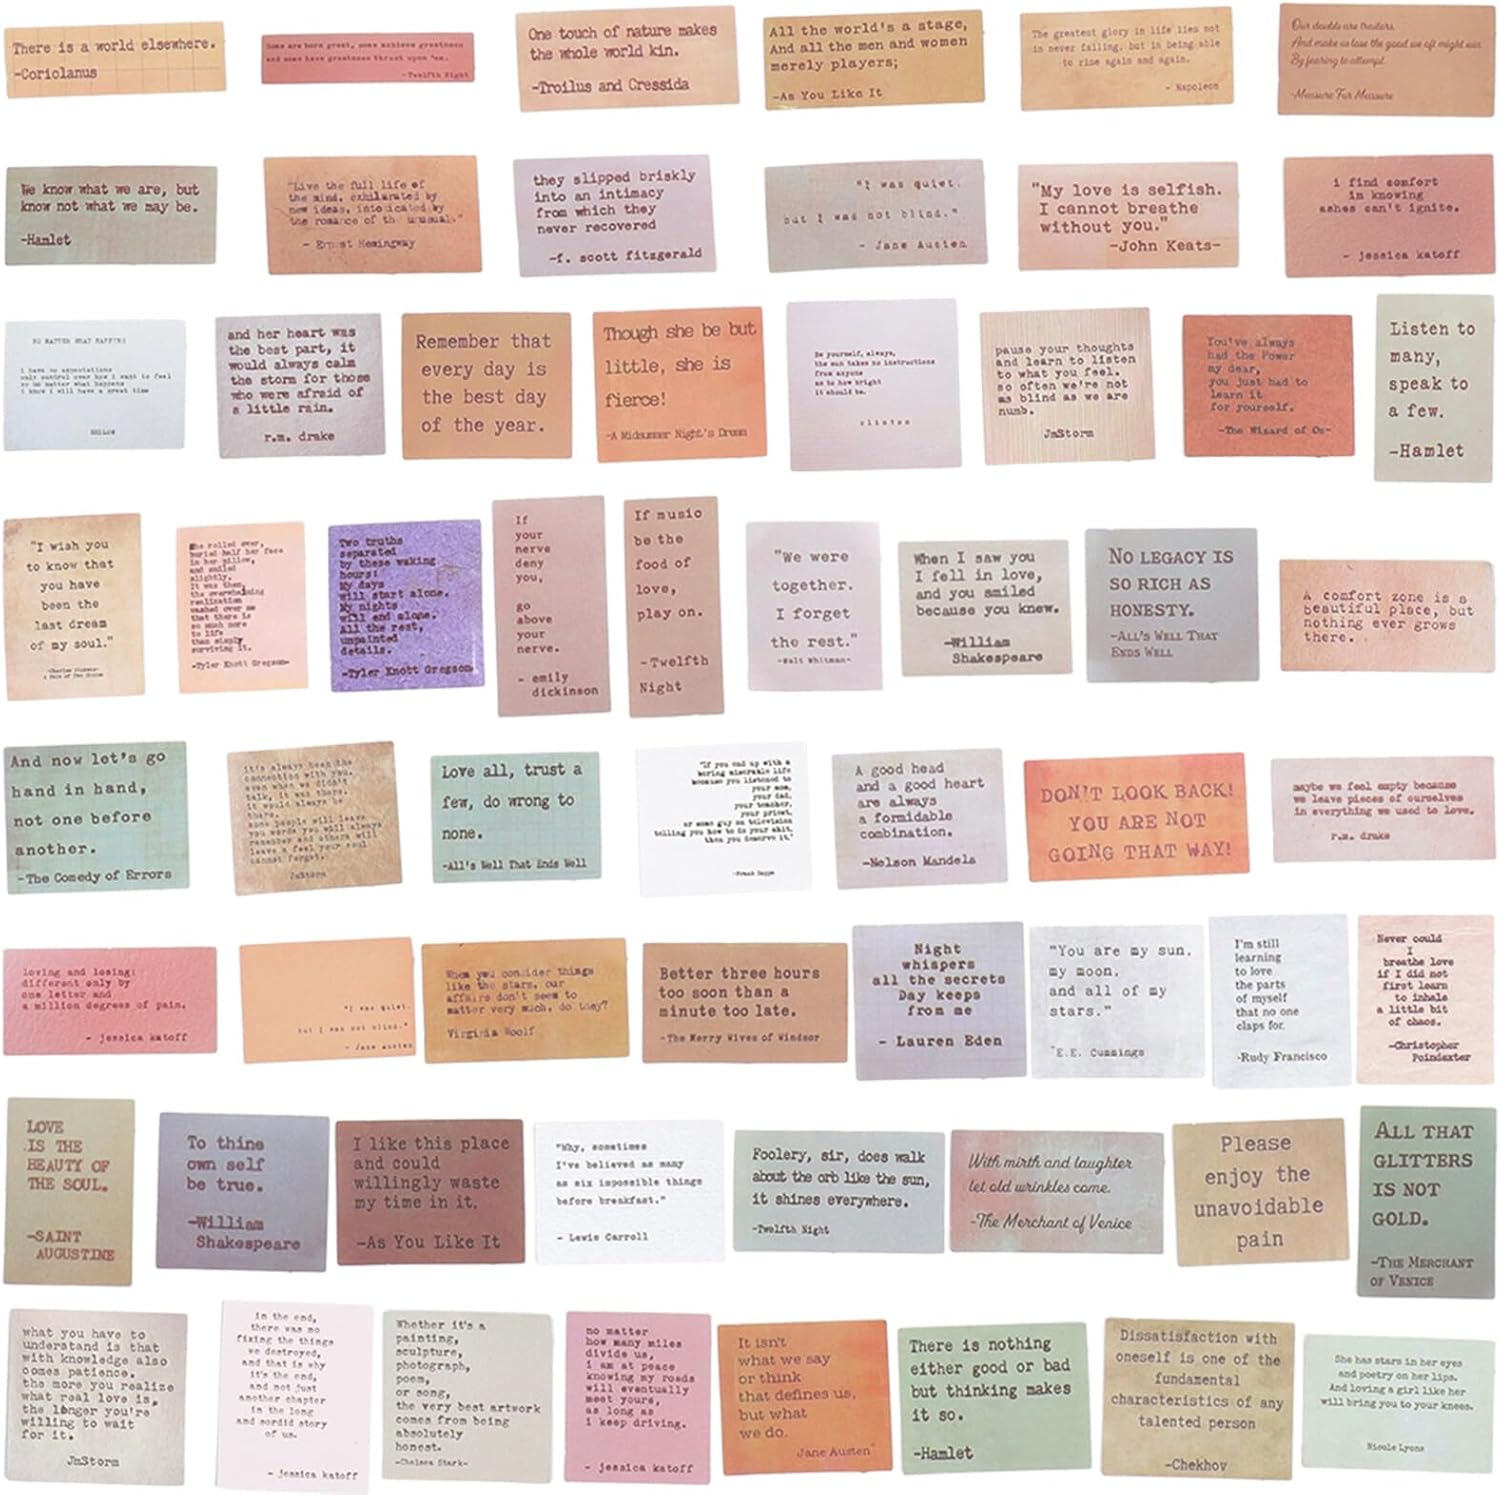 There is a world elsewhere.
-Coriolanus
Some are born great, some achieve greatness
and some have greatness thrust upon 'em.
-Twelfth Night
One touch of nature makes
the whole world kin.
-Troilus and Cressida
All the world's a stage,
And all the men and women
merely players;
-As You Like It
The greatest glory in life lies not
in never failing, but in being able
to rise again and again.
- Napoleon
Our doubts are traitors,
And make us lose the good we oft might win
By fearing to attempt.
-Measure For Measure
We know what we are, but
know not what we may be.
-Hamlet
"Live the full life of
the mind, exhilarated by
new ideas, intoxicated by
the romance of the unusual."
- Ernest Hemingway
they slipped briskly
into an intimacy
from which they
never recovered
-f. scott fitzgerald
"I was quiet,
but I was not blind."
- Jane Austen
"My love is selfish.
I cannot breathe
without you."
-John Keats-
i find comfort
in knowing
ashes can't ignite.
- jessica katoff
NO MATTER WHAT HAPPENS
i have no expectations
only control over how i want to feel
so no matter what happens
i know i will have a great time
and her heart was
the best part, it
would always calm
the storm for those
who were afraid of
a little rain.
r.m. drake
Remember that
every day is
the best day
of the year.
Though she be but
little, she is
fierce!
-A Midsummer Night's Dream
Be yourself, always,
the sun takes no instructions
from anyone
as to how bright
it should be.
clinton
pause your thoughts
and learn to listen
to what you feel.
so often we're not
as blind as we are
numb.
JmStorm
You've always
had the Power
my dear,
you just had to
learn it
for yourself.
-The Wizard of Oz-
Listen to
many,
speak to
a few.
-Hamlet
"I wish you
to know that
you have
been the
last dream
of my soul."
-Charles Dickens-
A Tale of Two Cities
She rolled over,
buried half her face
in her pillow,
and smiled
slightly.
It was then,
the overwhelming
realization
washed over me
that there is
so much more
to life
than simply
surviving it.
-Tyler Knott Gregson-
Two truths
separated
by these waking
hours:
My days
will start alone.
My nights
will end alone.
All the rest,
unpainted
details.
-Tyler Knott Gregson-
If
your
nerve
deny
you,
go
above
your
nerve.
- emily
dickinson
If music
be the
food of
love,
play on.
-Twelfth
Night
"We were
together.
I forget
the rest."
-Walt Whitman-
When I saw you
I fell in love,
and you smiled
because you knew.
-William
Shakespeare
NO LEGACY IS
SO RICH AS
HONESTY.
-ALL'S WELL THAT
ENDS WELL
A comfort zone is a
beautiful place, but
nothing ever grows
there.
And now let's go
hand in hand,
not one before
another.
-The Comedy of Errors
it's always been the
connection with you.
even when we didn't
talk, it was there.
it would always be
there.
some people will leave
you words you will always
remember and others will
leave a feel your soul
cannot forget.
JmStorm
Love all, trust a
few, do wrong to
none.
-All's Well That Ends Well
"If you end up with a
boring miserable life
because you listened to
your mom,
your dad,
your teacher,
your priest,
or some guy on television
telling you how to do your shit,
then you deserve it."
-Frank Zappa
A good head
and a good heart
are always
a formidable
combination.
-Nelson Mandela
DON'T LOOK BACK!
YOU ARE NOT
GOING THAT WAY!
maybe we feel empty because
we leave pieces of ourselves
in everything we used to love.
r.m. drake
loving and losing:
different only by
one letter and
a million degrees of pain.
- jessica katoff
"I was quiet,
but I was not blind."
- Jane Austen
When you consider things
like the stars, our
affairs don't seem to
matter very much, do they?
Virginia Woolf
Better three hours
too soon than a
minute too late.
-The Merry Wives of Windsor
Night
whispers
all the secrets
Day keeps
from me
- Lauren Eden
"You are my sun,
my moon,
and all of my
stars."
E.E. Cummings
I'm still
learning
to love
the parts
of myself
that no one
claps for.
-Rudy Francisco
Never could
I
breathe love
if I did not
first learn
to inhale
a little bit
of chaos.
-Christopher
Poindexter
LOVE
IS THE
BEAUTY OF
THE SOUL.
-SAINT
AUGUSTINE
To thine
own self
be true.
-William
Shakespeare
I like this place
and could
willingly waste
my time in it.
-As You Like It
"Why, sometimes
I've believed as many
as six impossible things
before breakfast."
- Lewis Carroll
Foolery, sir, does walk
about the orb like the sun,
it shines everywhere.
-Twelfth Night
With mirth and laughter
let old wrinkles come.
-The Merchant of Venice
Please
enjoy the
unavoidable
pain
ALL THAT
GLITTERS
IS NOT
GOLD.
-THE MERCHANT
OF VENICE
what you have to
understand is that
with knowledge also
comes patience.
the more you realize
what real love is,
the longer you're
willing to wait
for it.
JmStorm
in the end,
there was no
fixing the things
we destroyed,
and that is why
it's the end,
and not just
another chapter
in the long
and sordid story
of us.
- jessica katoff
Whether it's a
painting,
sculpture,
photograph,
poem,
or song,
the very best artwork
comes from being
absolutely
honest.
-Chelsea Stark-
no matter
how many miles
divide us,
i am at peace
knowing my roads
will eventually
meet yours,
as long as
i keep driving.
- jessica katoff
It isn't
what we say
or think
that defines us,
but what
we do.
Jane Austen"
There is nothing
either good or bad
but thinking makes
it so.
-Hamlet
Dissatisfaction with
oneself is one of the
fundamental
characteristics of any
talented person
-Chekhov
She has stars in her eyes
and poetry on her lips.
And loving a girl like her
will bring you to your knees.
Nicole Lyons